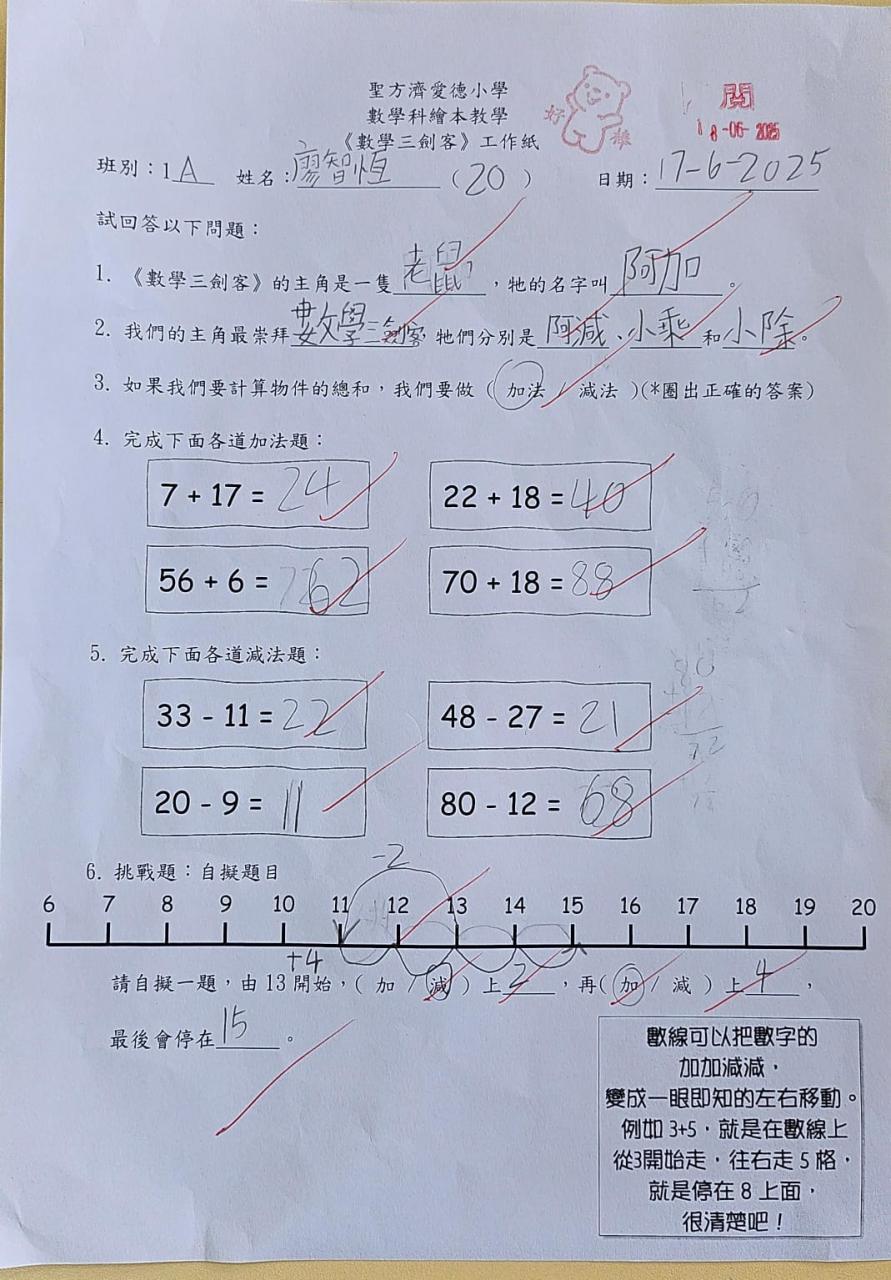 聖方濟愛德小學
數學科繪本教學
《數學三劍客》工作紙
好棒
閱
18-06-2025
班別：1A 姓名：廖智恆（20） 日期：17-6-2025
試回答以下問題：
1. 《數學三劍客》的主角是一隻老鼠，牠的名字叫阿加。
2. 我們的主角最崇拜數學三劍客，牠們分別是阿減、小乘和小除。
3. 如果我們要計算物件的總和，我們要做（加法 / 減法）(*圈出正確的答案)
4. 完成下面各道加法題：
7 + 17 = 24 22 + 18 = 40
56 + 6 = 62 70 + 18 = 88
5. 完成下面各道減法題：
33 - 11 = 22 48 - 27 = 21
20 - 9 = 11 80 - 12 = 68
6. 挑戰題：自擬題目
-2
6 7 8 9 10 11 12 13 14 15 16 17 18 19 20
+4
請自擬一題，由13開始，（加 / 減）上2，再（加 / 減）上4，
最後會停在15。
數線可以把數字的
加加減減，
變成一眼即知的左右移動。
例如 3+5，就是在數線上
從3開始走，往右走 5 格，
就是停在 8 上面，
很清楚吧！